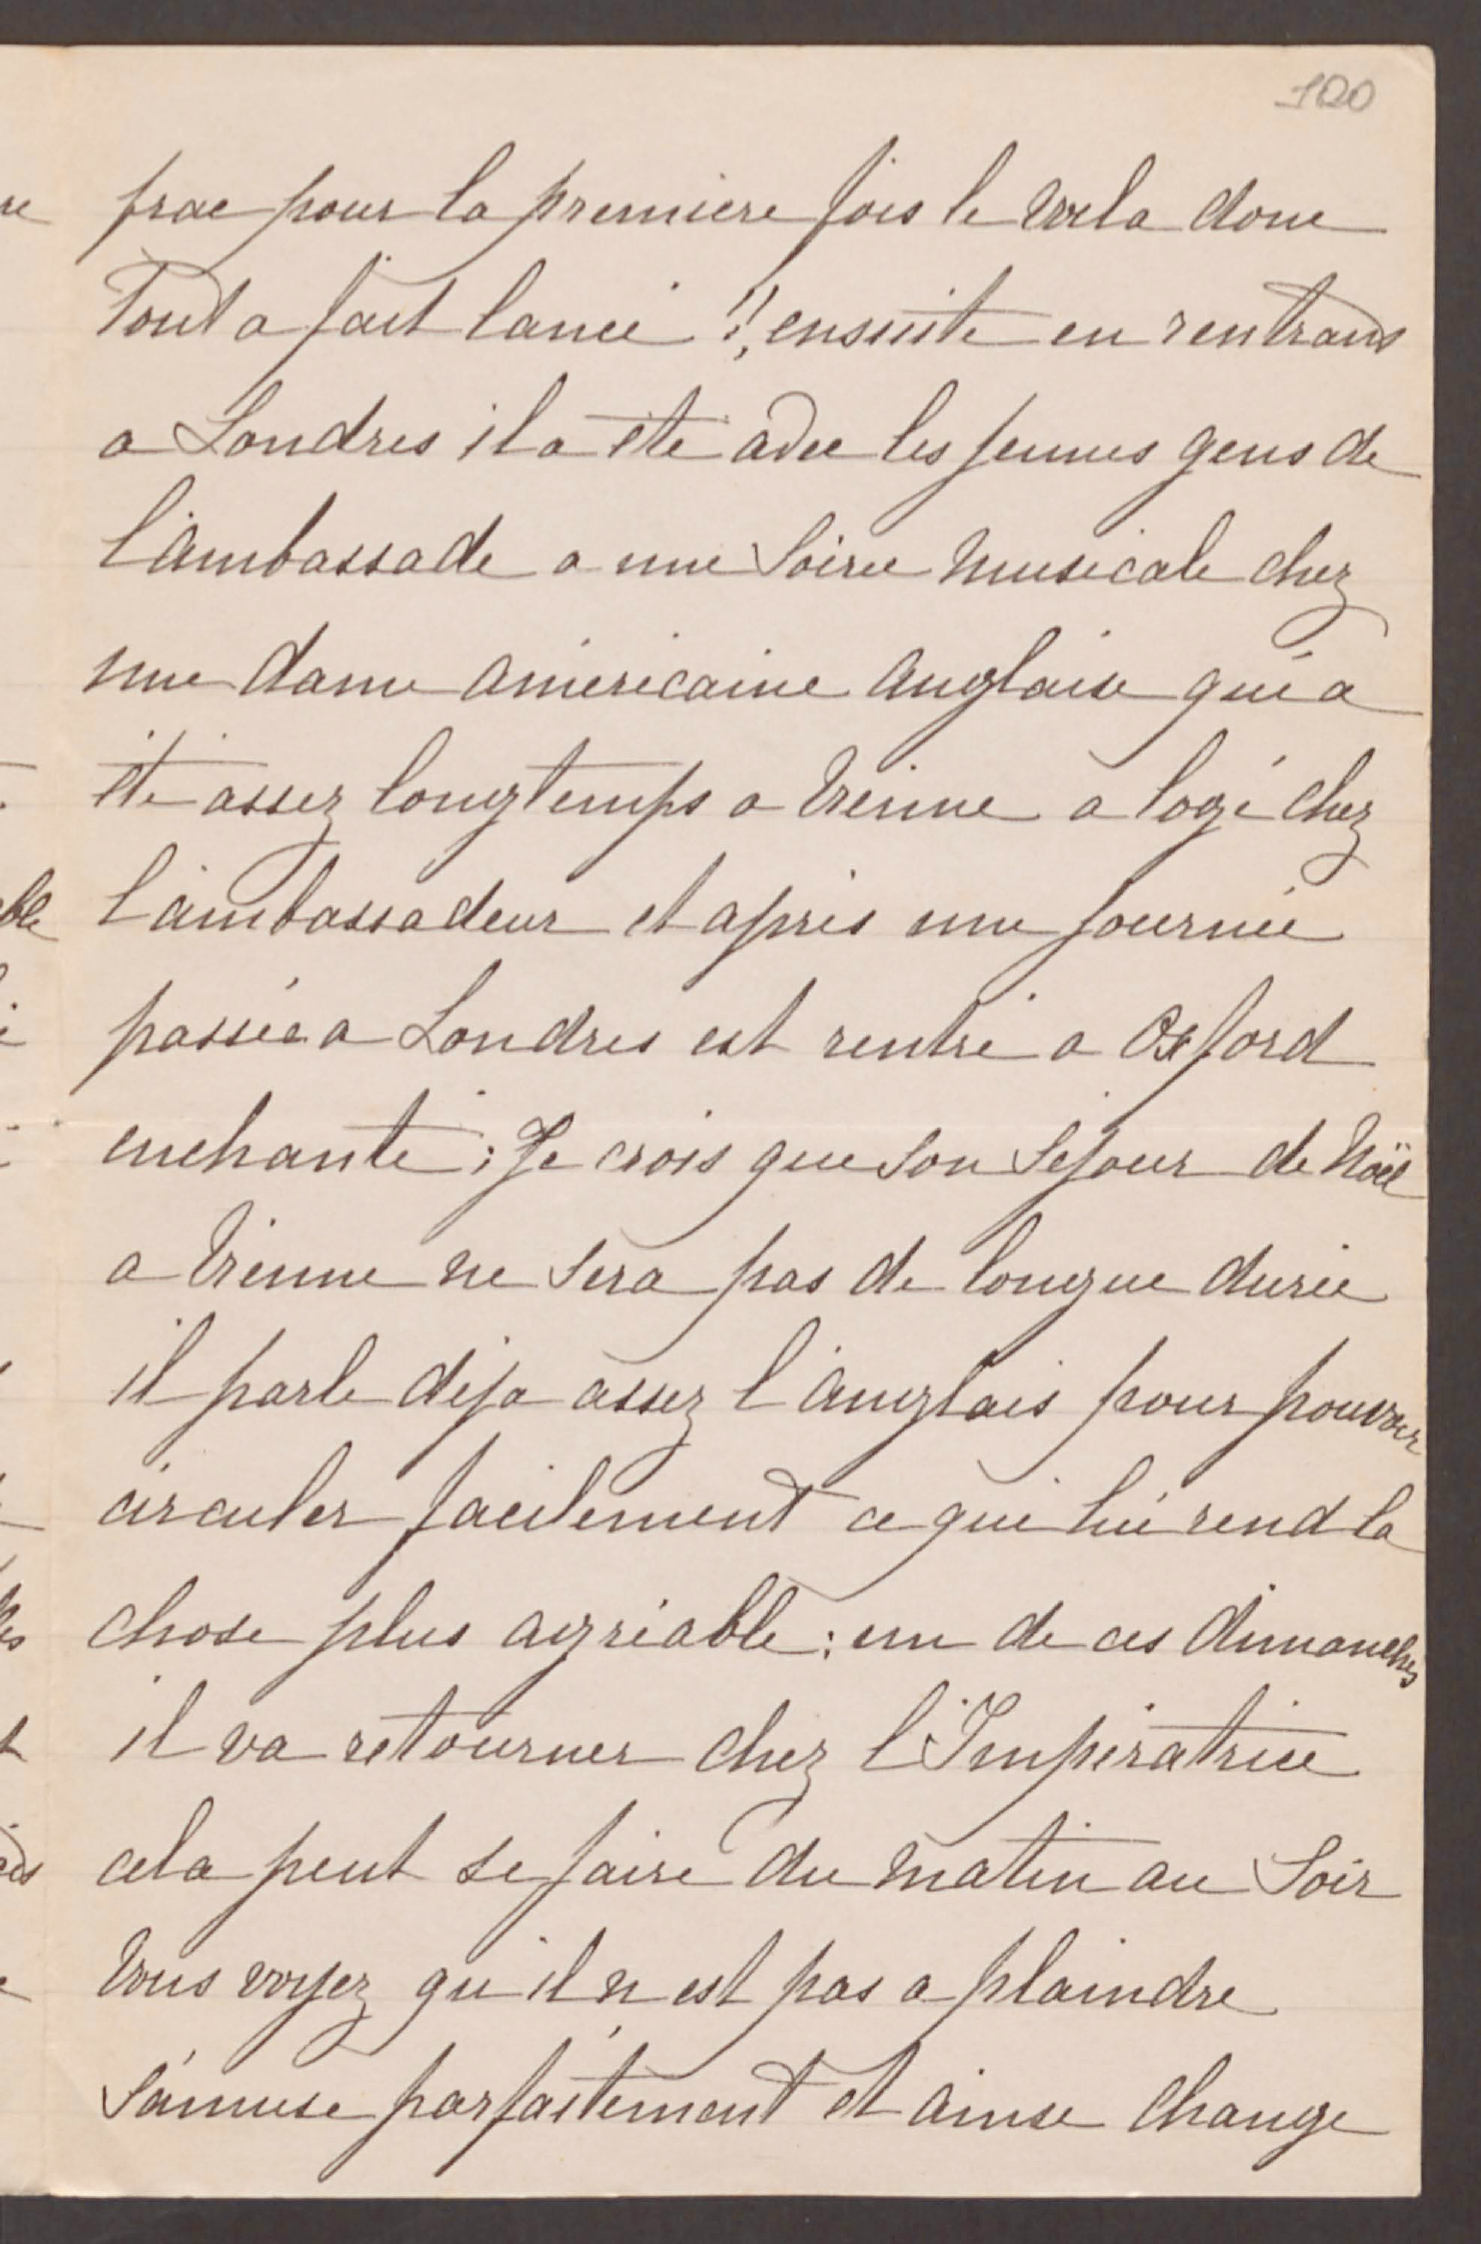 120
frac pour la premiere fois le voila donc
Tout a fait lancé !!, ensuite en rentrant
a Londres il a été avec les jeunes gens de
l'ambassade a une Soirée Musicale chez
une dame américaine anglaise qui a
été assez longtemps a Vienne a logé chez
l'ambassadeur et après une journée
passée a Londres est rentré a Oxford
enchanté ; Je crois que son Sejour de Noël
a Vienne ne Sera pas de longue durée
il parle déja assez l'anglais pour pouvoir
circuler facilement ce qui lui rend la
chose plus agréable : un de ces dimanches
il va retourner chez l'Impératrice
cela peut se faire du Matin au Soir
Vous voyez qu'il n'est pas a plaindre
S'amuse parfaitement et ainsi change